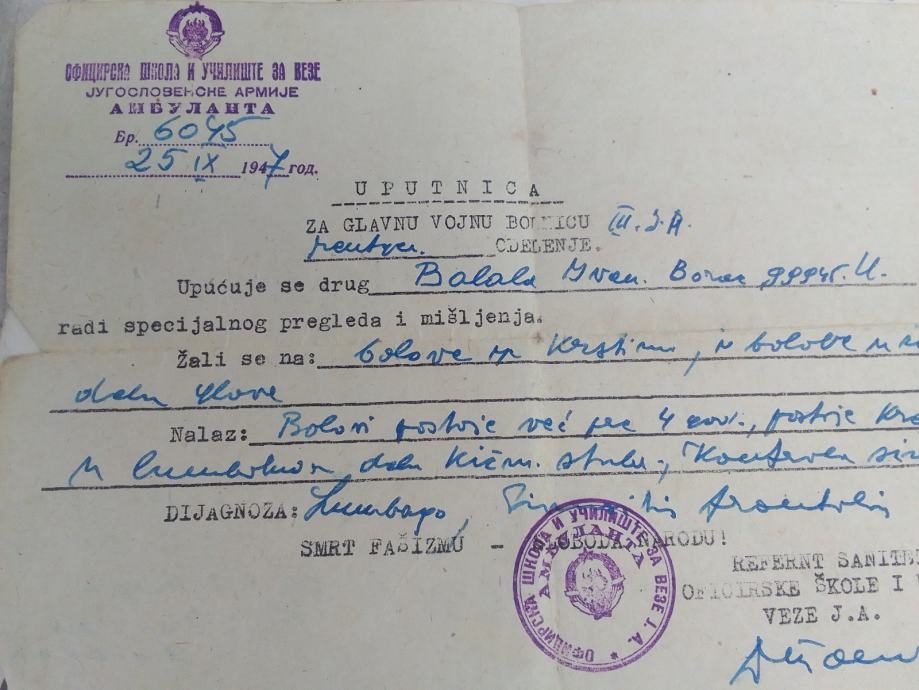 ОФИЦИРСКА ШКОЛА И УЧИЛИШТЕ ЗА ВЕЗЕ
ЈУГОСЛОВЕНСКЕ АРМИЈЕ
АМБУЛАНТА
Бр. 6045
25 IX 1947 год.
UPUTNICA
ZA GLAVNU VOJNU BOLNICU III. J.A.
ODELENJE.
Upućuje se drug Balala Ivan.
radi specijalnog pregleda i mišljenja.
Žali se na: bolove u krstima, i bolove u
delu glave
Nalaz: Bolovi postoje već pre 4 god., postoje
u lumbalnom delu kičm. stuba,
DIJAGNOZA: Lumbago, Sinusitis frontalis
SMRT FAŠIZMU - SLOBODA NARODU!
ОФИЦИРСКА ШКОЛА И УЧИЛИШТЕ ЗА ВЕЗЕ Ј.А.
АМБУЛАНТА
REFERNT SANITE
OFICIRSKE ŠKOLE I
VEZE J.A.